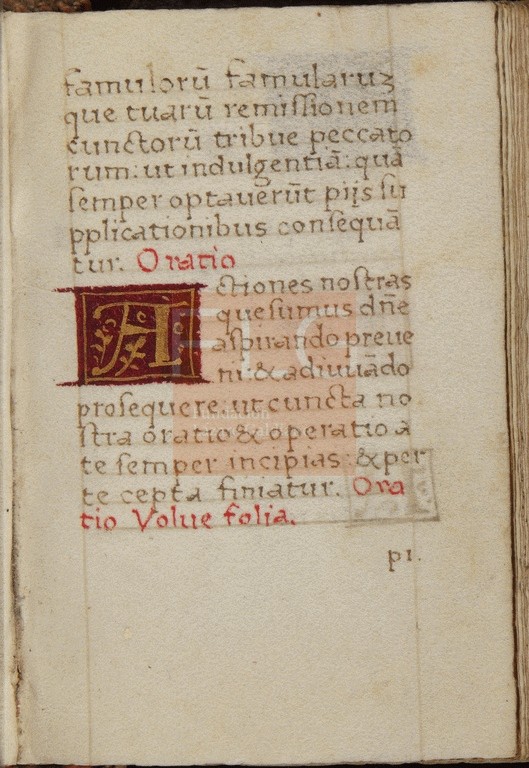 famulorū famularuꝫ
que tuarū remiſſionem
cunctorū tribue peccato
rum: ut indulgentiā: quā
ſemper optauerūt piȷs ſu
pplicationibus conſequā
tur. Oratio
Actiones noſtras
queſumus dn̄e
aſpirando preue
ni: & adiuuādo
proſequere: ut cuncta no
ſtra oratio & operatio a
te ſemper incipias: & per
te cepta finiatur. Ora
tio Volue folia.
pi.